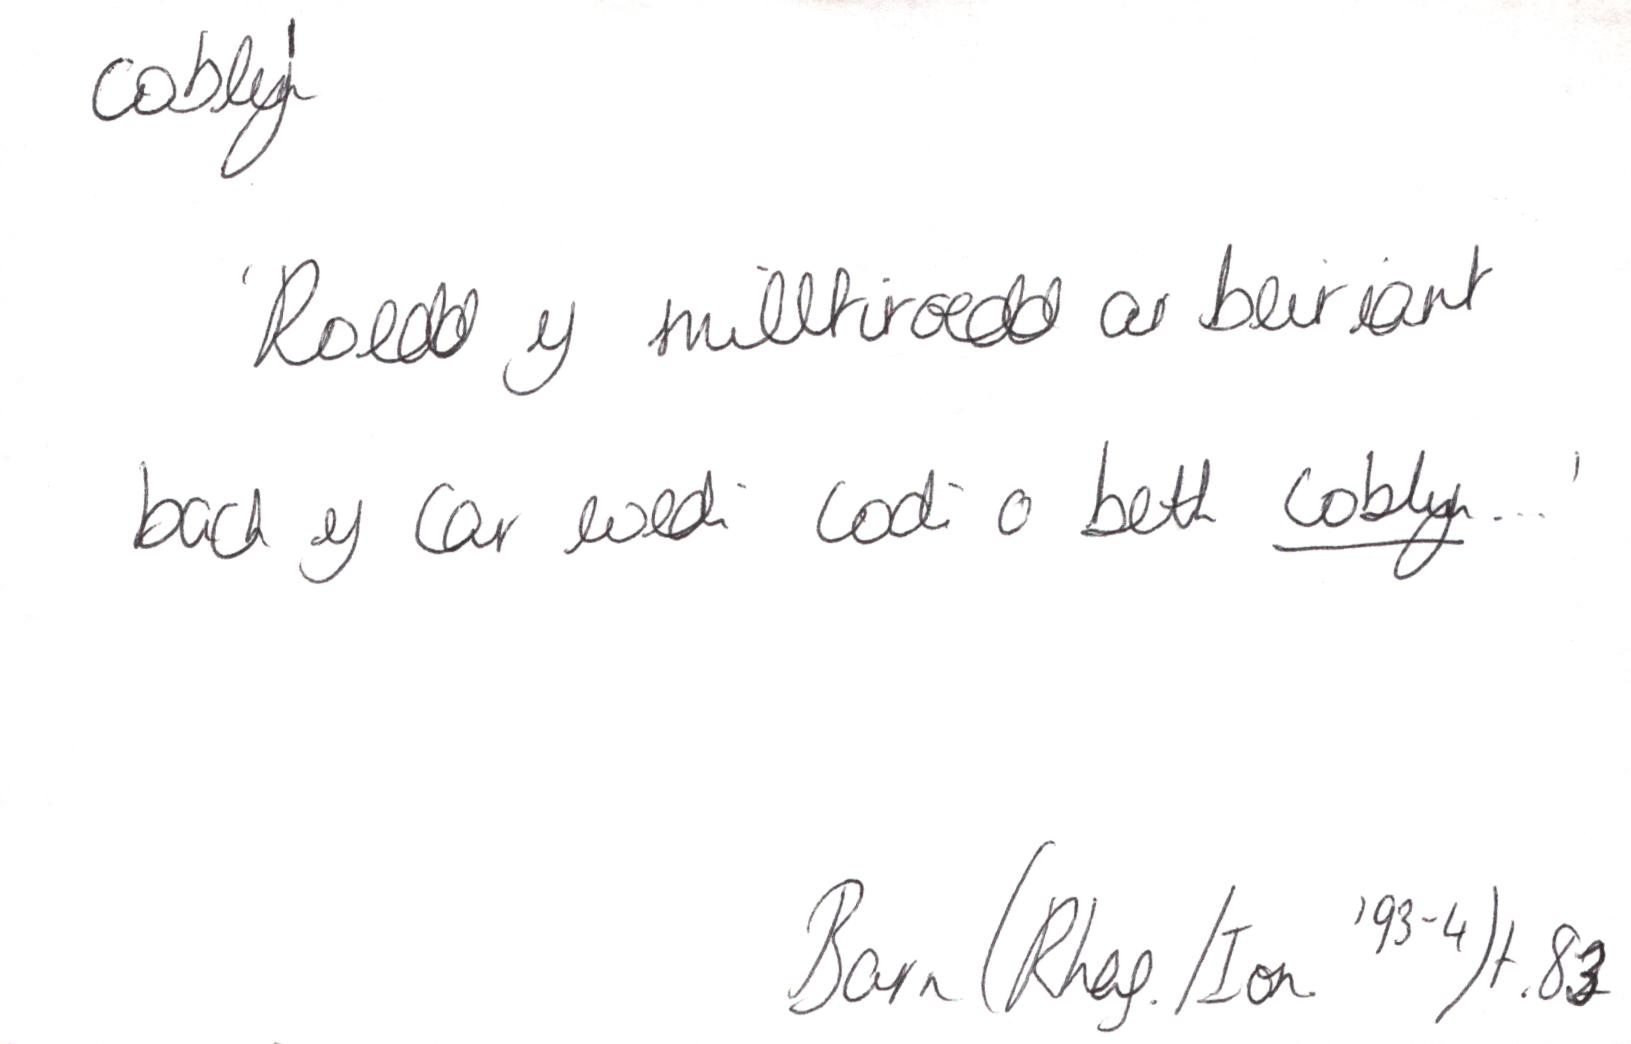 coblyn
'Roedd y milltiroedd ar beiriant
bach y car wedi codi o beth coblyn...'
Barn (Rhag./Ion '93-4) t.83